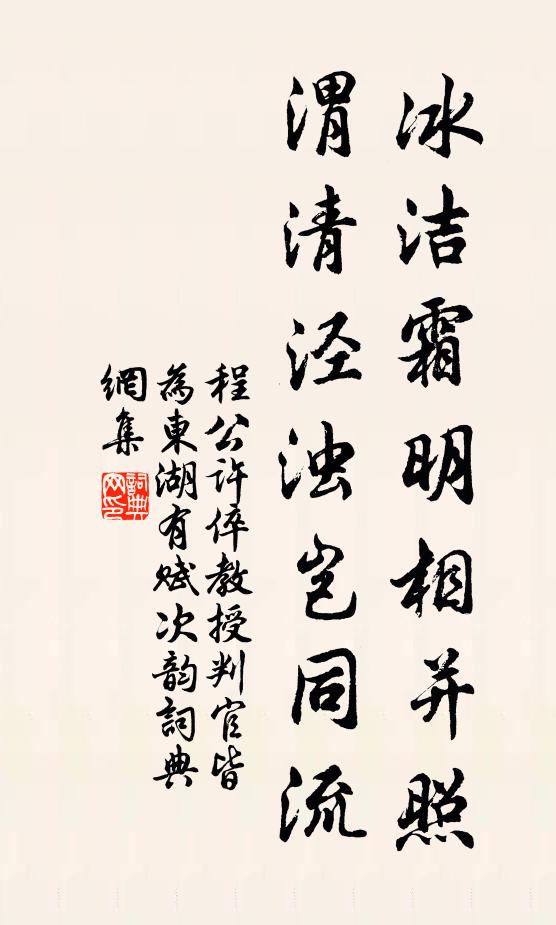 冰洁霜明相并照
渭清泾浊岂同流
程公许倅教授判官皆
為東湖有赋次韵詞典
網集
詞典
网印